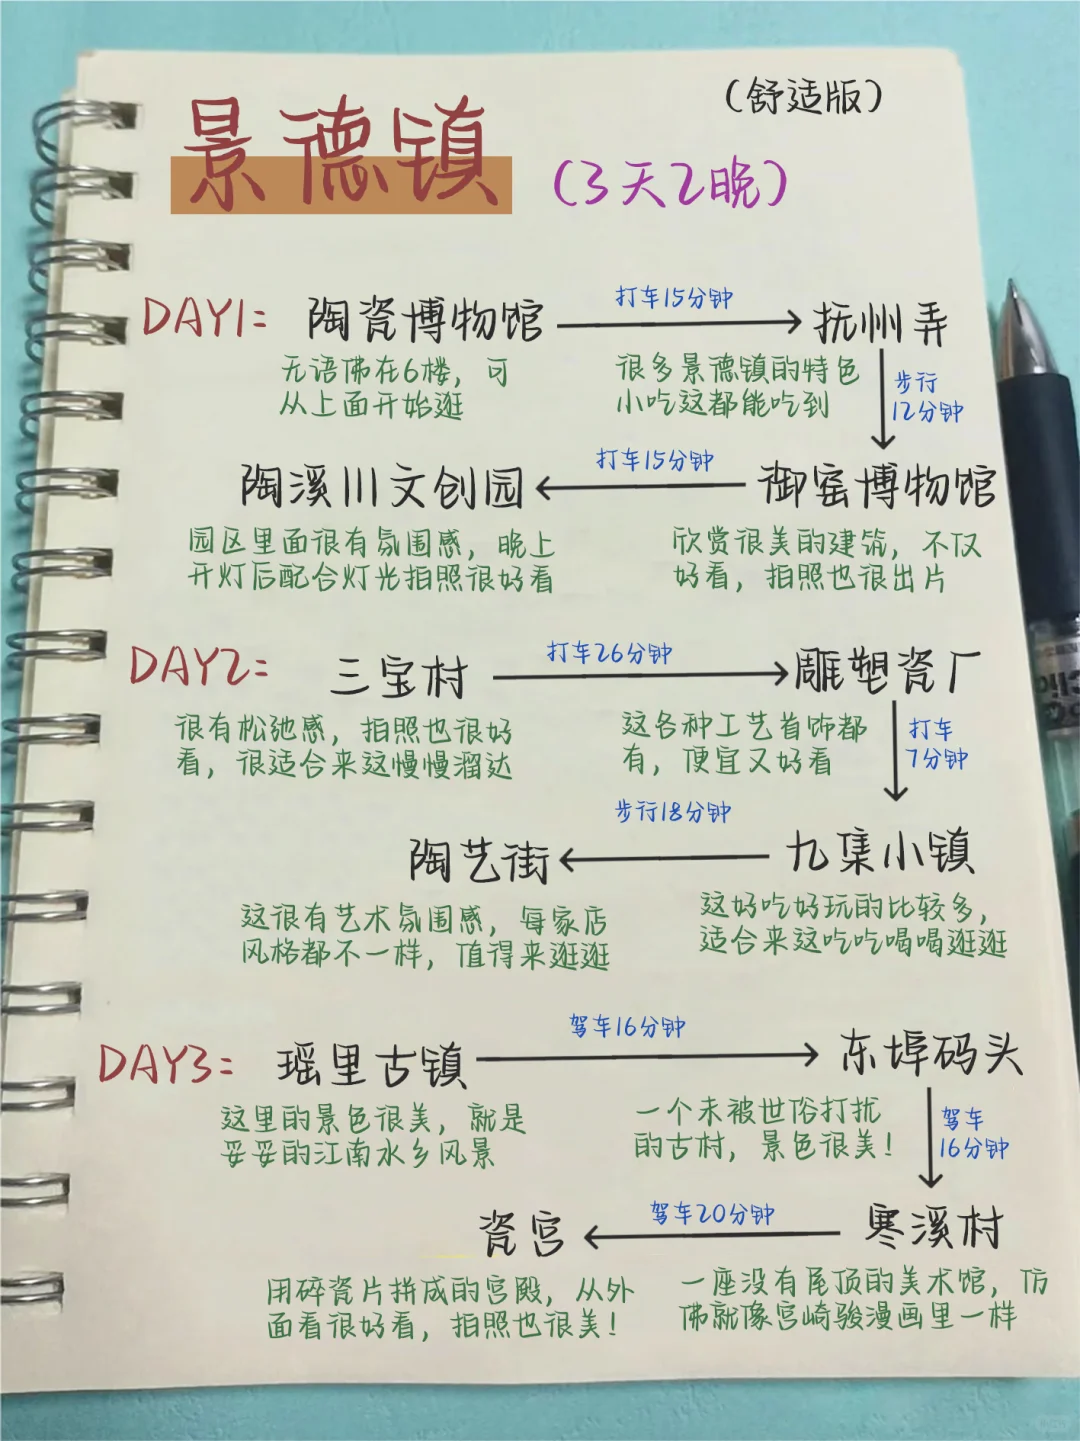 (舒适版)
景德镇
(3天2晚)
DAY1: 陶瓷博物馆 打车15分钟 抚州弄
无语佛在6楼，可
从上面开始逛
很多景德镇的特色
小吃这都能吃到
步行
12分钟
陶溪川文创园 打车15分钟 御窑博物馆
园区里面很有氛围感，晚上
开灯后配合灯光拍照很好看
欣赏很美的建筑，不仅
好看，拍照也很出片
DAY2: 三宝村 打车26分钟 雕塑瓷厂
很有松弛感，拍照也很好
看，很适合来这慢慢溜达
这各种工艺首饰都
有，便宜又好看
打车
7分钟
陶艺街 步行18分钟 九集小镇
这很有艺术氛围感，每家店
风格都不一样，值得来逛逛
这好吃好玩的比较多，
适合来这吃吃喝喝逛逛
DAY3: 瑶里古镇 驾车16分钟 东埠码头
这里的景色很美，就是
妥妥的江南水乡风景
一个未被世俗打扰
的古村，景色很美！
驾车
16分钟
瓷宫 驾车20分钟 寒溪村
用碎瓷片拼成的宫殿，从外
面看很好看，拍照也很美！
一座没有尾顶的美术馆，仿
佛就像宫崎骏漫画里一样